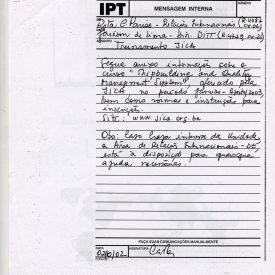 IPT
MENSAGEM INTERNA
NÚMERO
Rita C Parise - Relações Internacionais (R-4082
Jarison de Lima - Div. DITT (R-4329
Treinamento JICA
Segue anexo informação sobre o
curso "Shipbuilding and Quality
Management System" oferecido pela
JICA no período
bem como normas e instruções para
inscrição.
Site: www.jica.org.br
Obs: Caso haja interesse da Unidade,
a Área de Relações Internacionais - DE,
está à disposição para quaisquer
ajuda necessárias.
FAÇA SUAS COMUNICAÇÕES MANUALMENTE
DATA
ASSINATURA